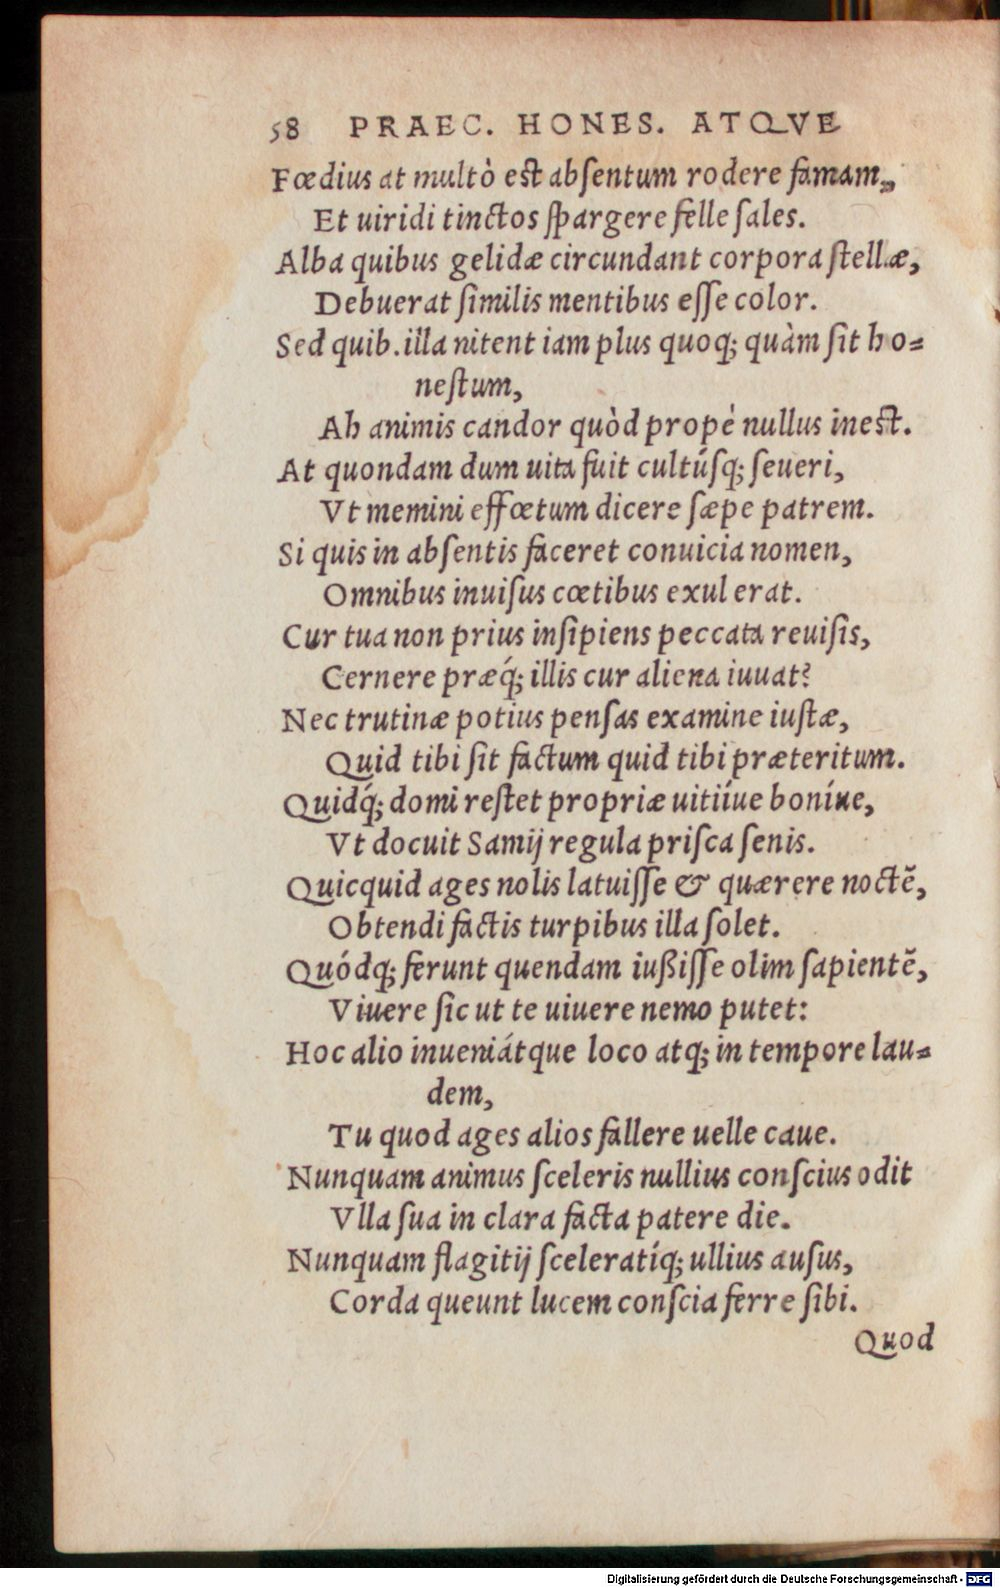 58 PRAEC. HONES. ATQVE
Fœdius at multò est absentum rodere famam,
Et uiridi tinctos spargere felle sales.
Alba quibus gelidæ circundant corpora stellæ,
Debuerat similis mentibus esse color.
Sed quib. illa nitent iam plus quoq; quàm sit ho-
nestum,
Ah animis candor quòd propè nullus inest.
At quondam dum uita fuit cultúsq; seueri,
Vt memini effœtum dicere sæpe patrem.
Si quis in absentis faceret conuicia nomen,
Omnibus inuisus cœtibus exul erat.
Cur tua non prius insipiens peccata reuisis,
Cernere præq́; illis cur aliena iuuat?
Nec trutinæ potius pensas examine iustæ,
Quid tibi sit factum quid tibi præteritum.
Quidq́; domi restet propriæ uitiíue boníue,
Vt docuit Samij regula prisca senis.
Quicquid ages nolis latuisse & quærere noctē,
Obtendi factis turpibus illa solet.
Quódq; ferunt quendam iußisse olim sapientē,
Viuere sic ut te uiuere nemo putet:
Hoc alio inueniátque loco atq; in tempore lau-
dem,
Tu quod ages alios fallere uelle caue.
Nunquam animus sceleris nullius conscius odit
Vlla sua in clara facta patere die.
Nunquam flagitij sceleratíq; ullius ausus,
Corda queunt lucem conscia ferre sibi.
Quod
Digitalisierung gefördert durch die Deutsche Forschungsgemeinschaft - DFG